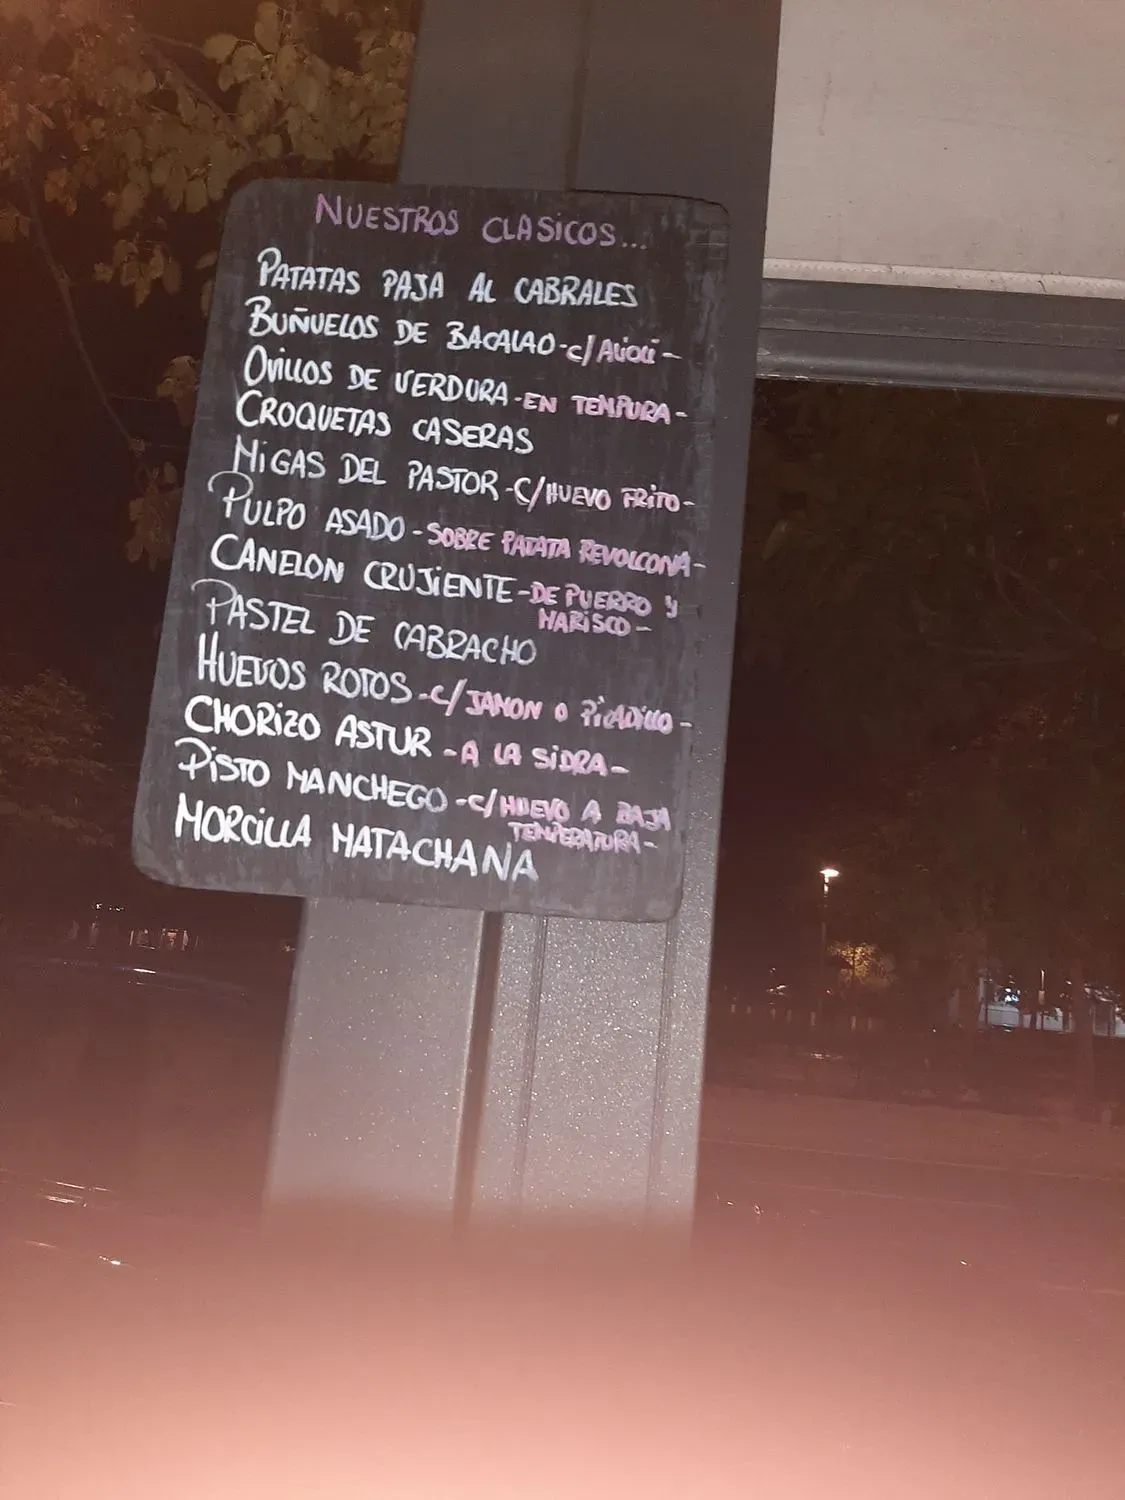 NUESTROS CLASICOS...
PATATAS PAJA AL CABRALES
BUÑUELOS DE BACALAO -C/ALIOLI-
OVILLOS DE VERDURA -EN TEMPURA-
CROQUETAS CASERAS
MIGAS DEL PASTOR -C/HUEVO FRITO-
PULPO ASADO -SOBRE PATATA REVOLCONA-
CANELON CRUJIENTE -DE PUERRO Y
MARISCO-
PASTEL DE CABRACHO
HUEVOS ROTOS -C/JAMON O PICADILLO-
CHORIZO ASTUR -A LA SIDRA-
PISTO MANCHEGO -C/HUEVO A BAJA
TEMPERATURA-
MORCILLA MATACHANA